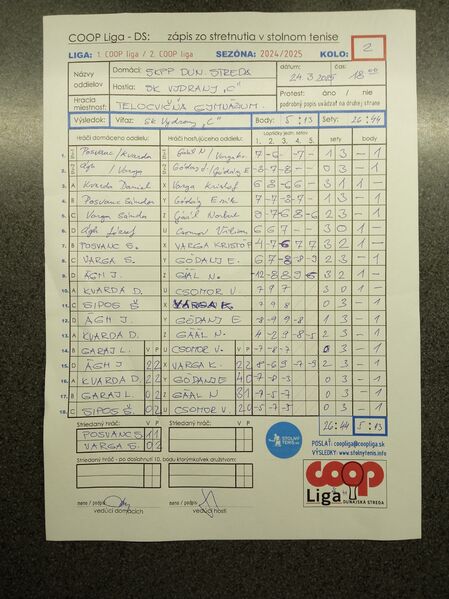 COOP Liga - DS: zápis zo stretnutia v stolnom tenise
LIGA: 1. COOP liga / 2. COOP liga SEZÓNA: 2024/2025 KOLO: 2
Názvy oddielov Domáci: ŠKPP DUN. STREDA dátum: 24.3.2025 18.00
Hostia: ŠK VYDRANY "C" Protest: áno / nie
Hracia miestnosť: TELOCVIČŇA GYMNÁZIUM podrobný popis uvádzať na druhej strane
Výsledok: Víťaz: ŠK Vydrany "C" Body: 5:13 Sety: 26:44
Hráči domáceho oddielu: Hráči hosťujúceho oddielu: Loptičky jedn. setov sety body
1. 2. 3. 4. 5.
1. Posvanc / Kvarda Gaál N / Varga K. 1 3 - 1
2. Ágh / Varga Gódány / Gódány E -8 -7 -8 0 3 - 1
3. A Kvarda Daniel X Varga Kristof 3 1 1 -
4. B Posvanc Sándor Y Gódány Emil 1 3 - 1
5. C Varga Sándor Z Gaál Norbert 2 3 - 1
6. D Ágh József U Csomor Viliam 6 6 7 3 0 1 -
7. B POSVANC S. X VARGA KRISTOF 4 -7 6 7 7 3 2 1 -
8. C VARGA S. Y GÓDÁNY E. 2 3 - 1
9. D ÁGH J. Z GÁÁL N. 3 2 1 -
10. A KVARDA D. U CSOMOR V 7 9 7 3 0 1 -
11. C SIPOS Š X VARGA K. 7 9 8 0 3 - 1
12. D ÁGH J Y GÓDÁNY E -8 -9 9 -8 1 3 - 1
13. A KVARDA D. Z GÁÁL N. 4 -2 9 -8 -5 2 3 - 1
14. B GARAJ L. V P U CSOMOR V. V P -7 -8 -7 0 3 - 1
15. D ÁGH J 2 2 X VARGA K. 2 2 8 -6 9 -7 -9 2 3 - 1
16. A KVARDA D. 2 2 Y GÓDÁNY E 4 0 -7 -8 -3 0 3 - 1
17. B GARAJ L. 0 2 Z GÁÁL N 3 1 -7 -5 -7 0 3 - 1
18. C SIPOS Š. 0 2 U CSOMOR V. 2 0 -5 -7 -5 0 3 - 1
Striedaný hráč: V P Striedaný hráč: V P 26:44 5:13
POSVANC S. 1 1
VARGA S. 0 2
STOLNÝ TENIS
POSLAŤ: coopliga@coopliga.sk
VÝSLEDKY: www.stolnytenis.info
Striedaný hráč - po dosiahnutí 10. bodu ktorýmkoľvek družstvom:
coop
Liga
DUNAJSKÁ STREDA
meno / podpis
vedúci domácich
meno / podpis
vedúci hostí